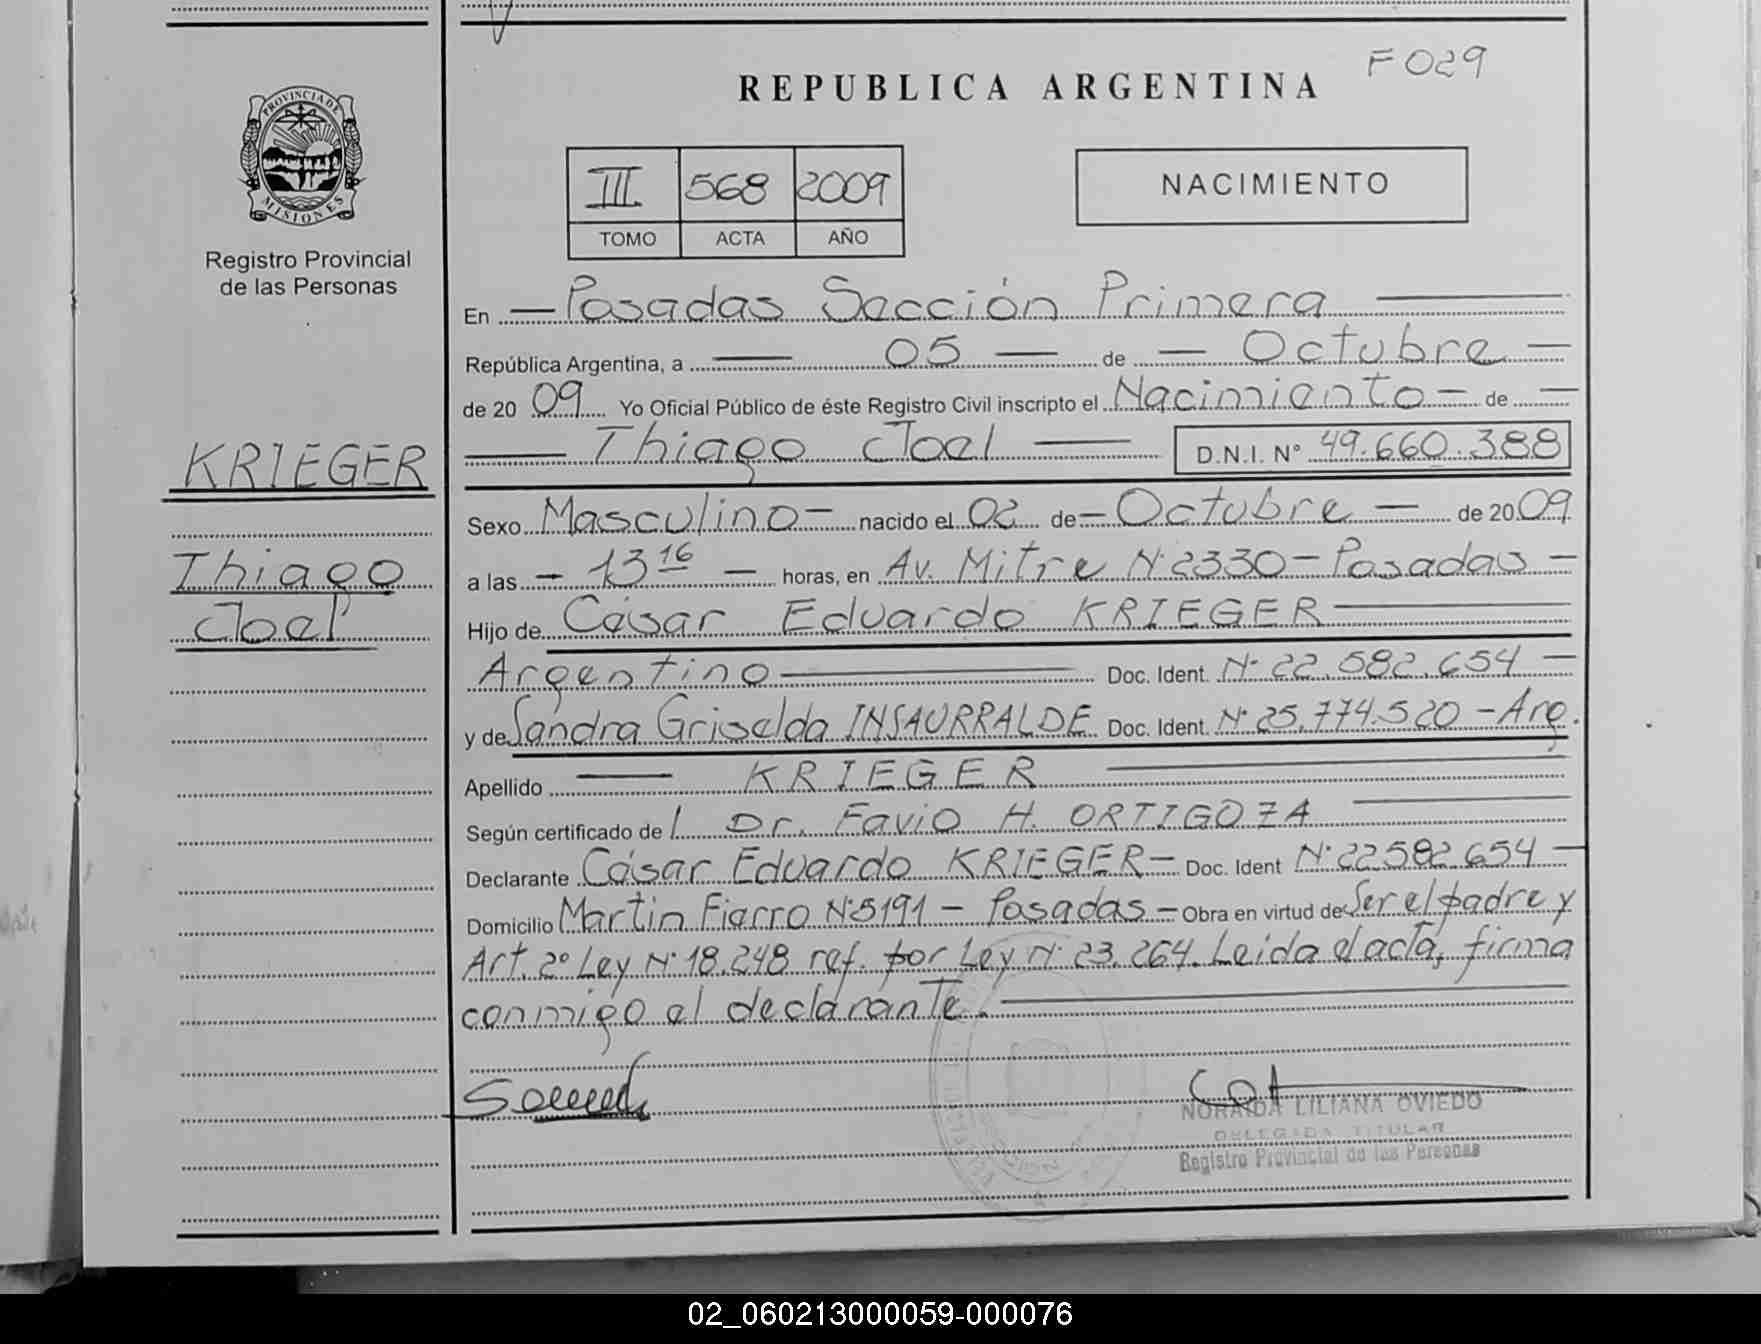 F029
REPUBLICA ARGENTINA
PROVINCIA DE
MISIONES
Registro Provincial
de las Personas
III 568 2009
TOMO ACTA AÑO
NACIMIENTO
En — Posadas Sección Primera —
República Argentina, a — 05 — de — Octubre —
de 20 09 Yo Oficial Público de éste Registro Civil inscripto el Nacimiento — de —
— Thiago Joel — D.N.I. N° 49.660.388
KRIEGER
Thiago
Joel
Sexo Masculino — nacido el 02 de — Octubre — de 2009
a las — 13 16 — horas, en Av. Mitre N° 2330 — Posadas —
Hijo de César Eduardo KRIEGER —
Argentino — Doc. Ident. N° 22.582.654 —
y de Sandra Griselda INSAURRALDE Doc. Ident. N° 25.774.520 — Arg.
Apellido — KRIEGER —
Según certificado de l Dr. Favio H. ORTIGOZA —
Declarante César Eduardo KRIEGER — Doc. Ident N° 22.582.654 —
Domicilio Martin Fierro N° 5191 — Posadas — Obra en virtud de Ser el padre y
Art. 2° Ley N° 18.248 ref. por Ley N° 23.264. Leida el acta, firma
conmigo el declarante. —
NORAIDA LILIANA OVIEDO
DELEGADA TITULAR
Registro Provincial de las Personas
02_060213000059-000076